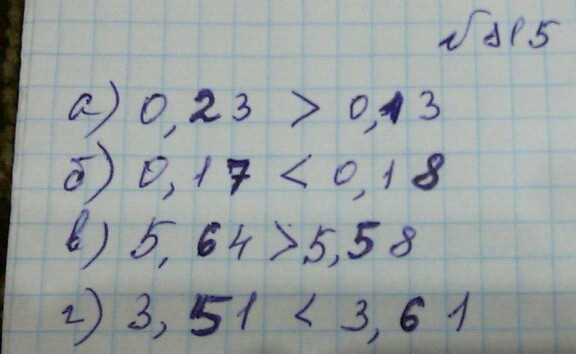 № 815
а) 0,23 > 0,13
б) 0,17 < 0,18
в) 5,64 > 5,58
г) 3,51 < 3,61